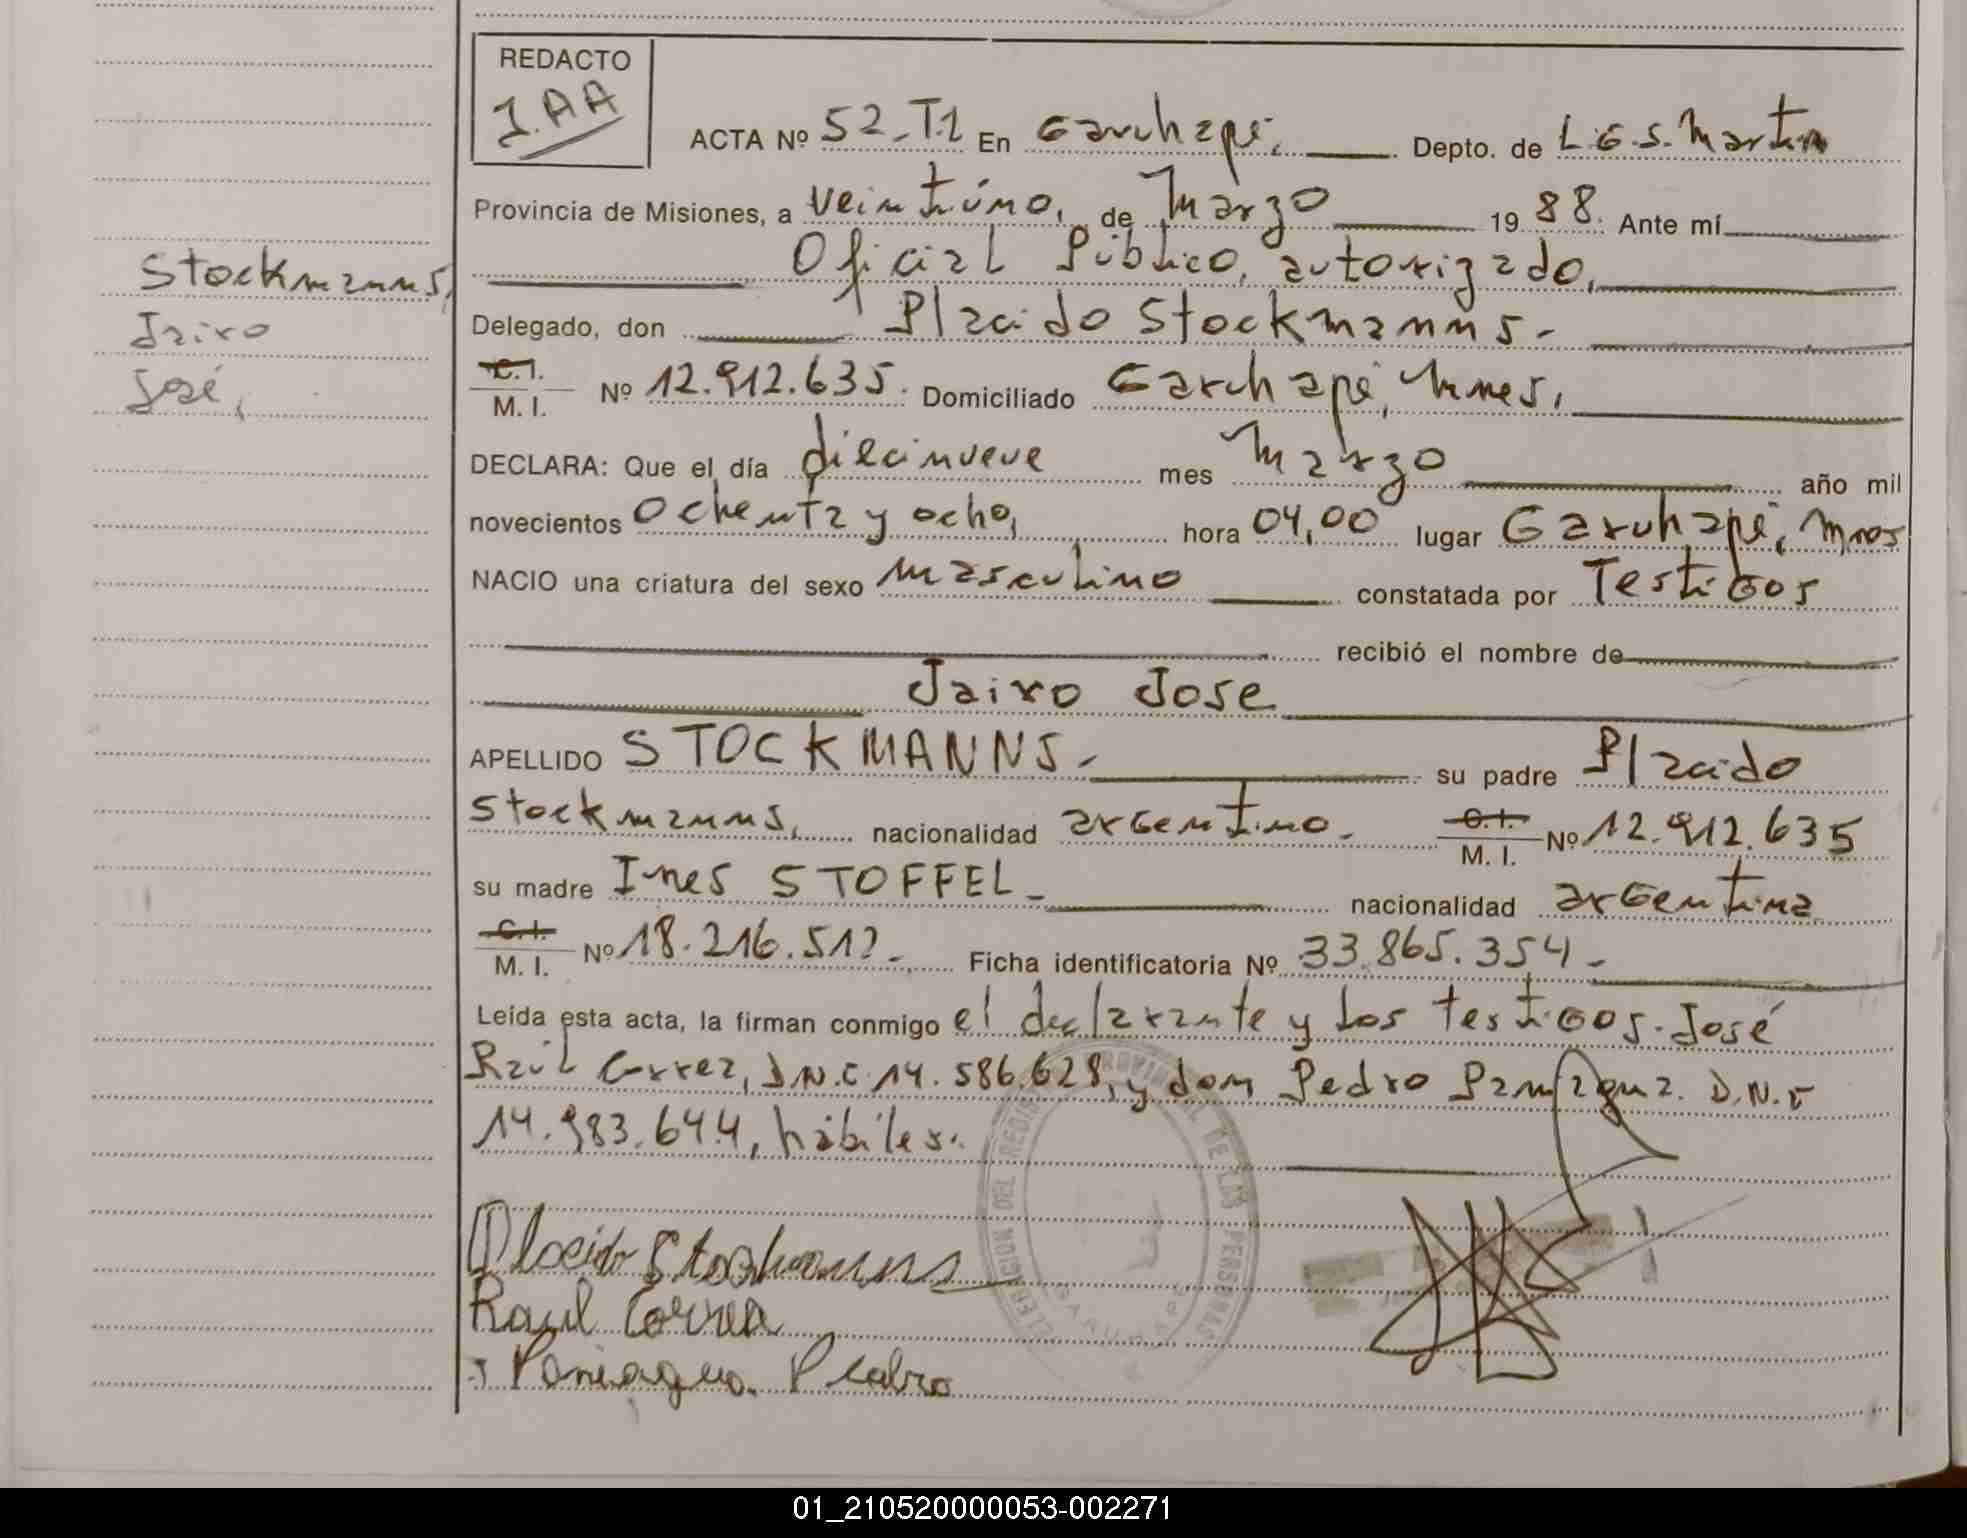 REDACTO
J.AA
ACTA Nº 52-T.1 En Garuhapé, Depto. de L.G.S. Martin
Provincia de Misiones, a veintiúno, de Marzo 19 88. Ante mí
Oficial Público, autorizado,
Stockmanns,
Jairo
José,
Delegado, don Placido Stockmanns.-
C.I. M. I. Nº 12.912.635. Domiciliado Garuhapé, Mnes,
DECLARA: Que el día diecinueve mes Marzo año mil
novecientos Ochenta y ocho, hora 04,00 lugar Garuhapé, Mnes
NACIO una criatura del sexo masculino constatada por Testigos
recibió el nombre de
Jairo Jose
APELLIDO STOCKMANNS.- su padre Placido
Stockmanns, nacionalidad argentino.- C.I. M. I. Nº 12.912.635
su madre Ines STOFFEL- nacionalidad argentina
C.I. M. I. Nº 18.216.512.- Ficha identificatoria Nº 33.865.354.-
Leída esta acta, la firman conmigo el declarante y los testigos. José
Raúl Correa, D.N.I. 14.586.628, y don Pedro Paniagua. D.N.I
14.983.644, hábiles.
DELEGACION DEL REGISTRO PROVINCIAL DE LAS PERSONAS
GARUHAPE
Placido Stockmanns
Raul Correa
Paniagua. Pedro
01_210520000053-002271